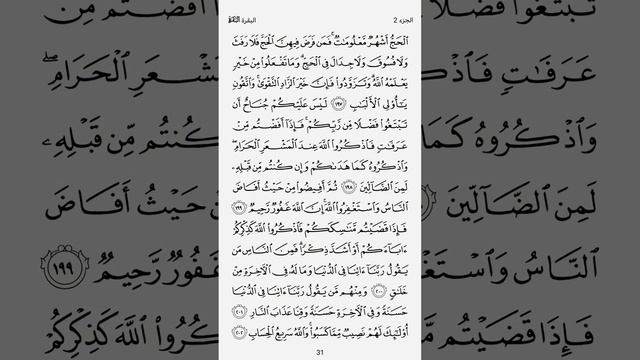 الجزء 2 البقرة
ٱلۡحَجُّ أَشۡهُرٞ مَّعۡلُومَٰتٞۚ فَمَن فَرَضَ فِيهِنَّ ٱلۡحَجَّ فَلَا رَفَثَ
وَلَا فُسُوقَ وَلَا جِدَالَ فِي ٱلۡحَجِّۗ وَمَا تَفۡعَلُواْ مِنۡ خَيۡرٖ
يَعۡلَمۡهُ ٱللَّهُۗ وَتَزَوَّدُواْ فَإِنَّ خَيۡرَ ٱلزَّادِ ٱلتَّقۡوَىٰۖ وَٱتَّقُونِ
يَٰٓأُوْلِي ٱلۡأَلۡبَٰبِ ١٩٧ لَيۡسَ عَلَيۡكُمۡ جُنَاحٌ أَن
تَبۡتَغُواْ فَضۡلٗا مِّن رَّبِّكُمۡۚ فَإِذَآ أَفَضۡتُم مِّنۡ
عَرَفَٰتٖ فَٱذۡكُرُواْ ٱللَّهَ عِندَ ٱلۡمَشۡعَرِ ٱلۡحَرَامِۖ
وَٱذۡكُرُوهُ كَمَا هَدَىٰكُمۡ وَإِن كُنتُم مِّن قَبۡلِهِۦ
لَمِنَ ٱلضَّآلِّينَ ١٩٨ ثُمَّ أَفِيضُواْ مِنۡ حَيۡثُ أَفَاضَ
ٱلنَّاسُ وَٱسۡتَغۡفِرُواْ ٱللَّهَۚ إِنَّ ٱللَّهَ غَفُورٞ رَّحِيمٞ ١٩٩
فَإِذَا قَضَيۡتُم مَّنَٰسِكَكُمۡ فَٱذۡكُرُواْ ٱللَّهَ كَذِكۡرِكُمۡ
ءَابَآءَكُمۡ أَوۡ أَشَدَّ ذِكۡرٗاۗ فَمِنَ ٱلنَّاسِ مَن
يَقُولُ رَبَّنَآ ءَاتِنَا فِي ٱلدُّنۡيَا وَمَا لَهُۥ فِي ٱلۡأٓخِرَةِ مِنۡ
خَلَٰقٖ ٢٠٠ وَمِنۡهُم مَّن يَقُولُ رَبَّنَآ ءَاتِنَا فِي ٱلدُّنۡيَا
حَسَنَةٗ وَفِي ٱلۡأٓخِرَةِ حَسَنَةٗ وَقِنَا عَذَابَ ٱلنَّارِ ٢٠١
أُوْلَٰٓئِكَ لَهُمۡ نَصِيبٞ مِّمَّا كَسَبُواْۚ وَٱللَّهُ سَرِيعُ ٱلۡحِسَابِ ٢٠٢
31